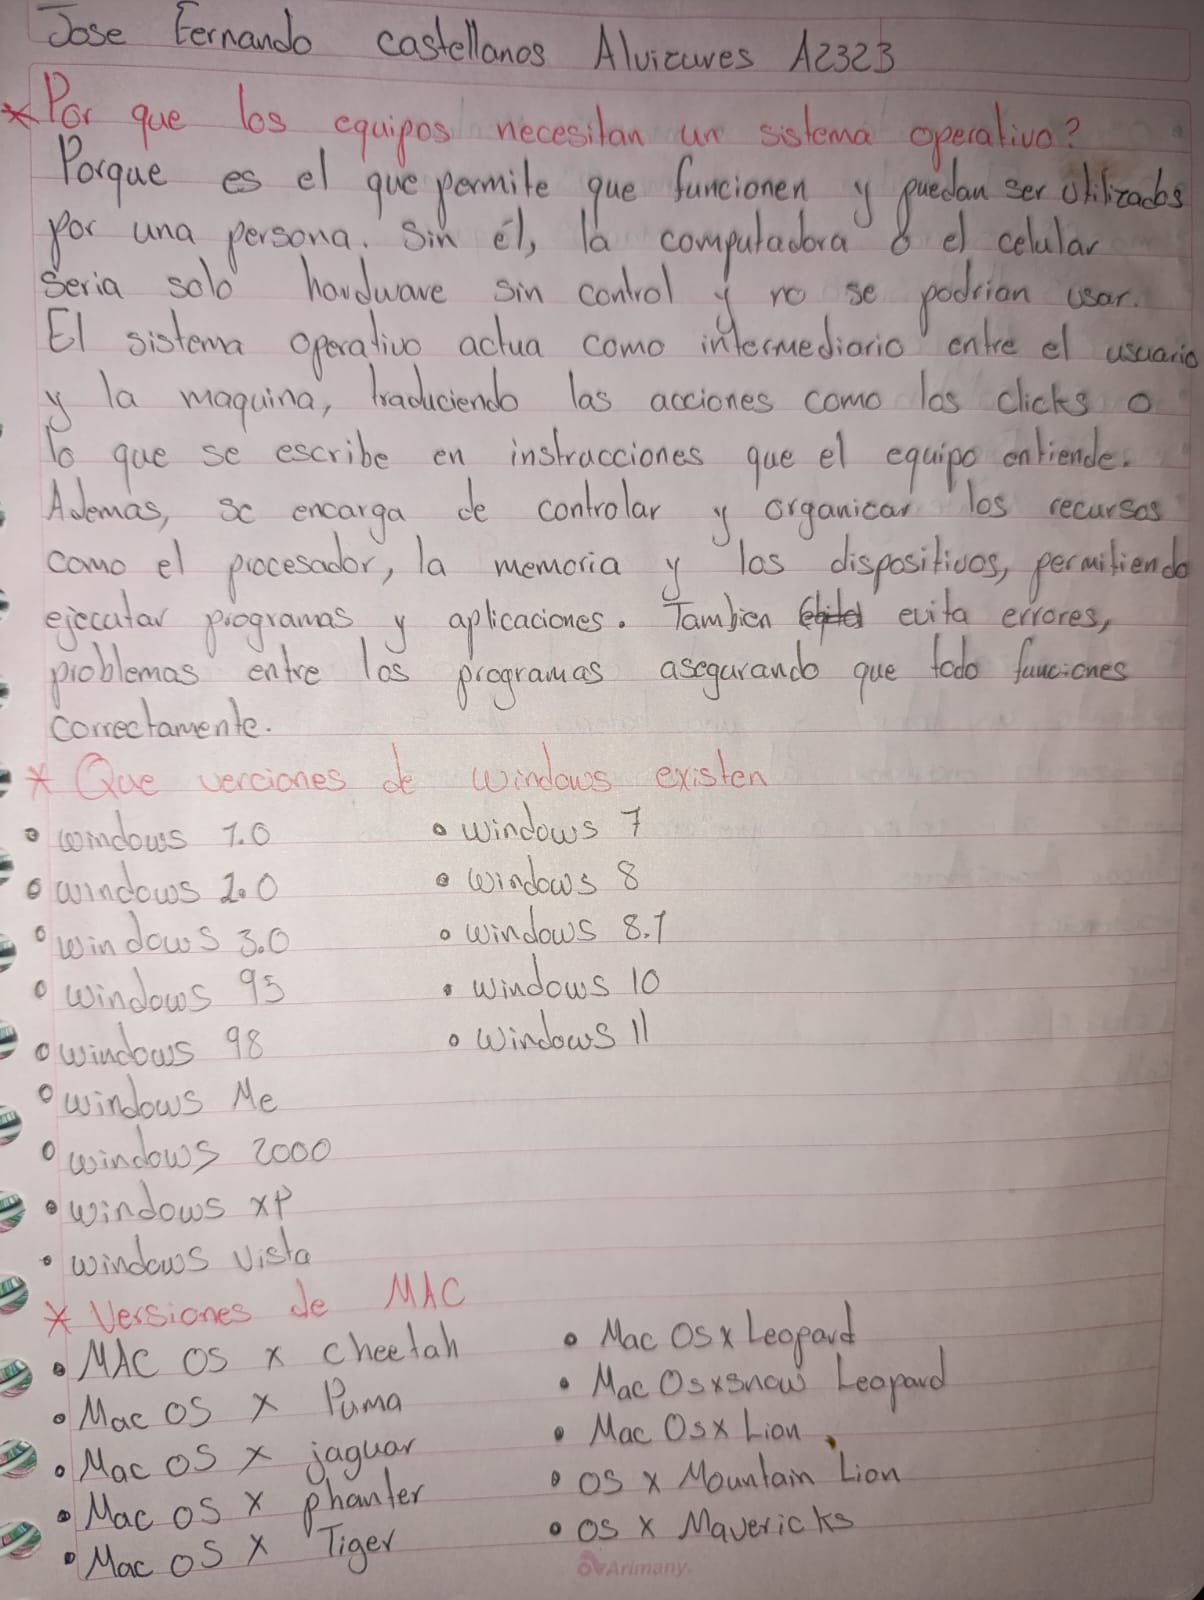 Jose Fernando castellanos Alvizures A2323
* Por que los equipos necesitan un sistema operativo?
Porque es el que permite que funcionen y puedan ser utilizados
por una persona. Sin él, la computadora o el celular
Seria solo hardware sin control y no se podrian usar.
El sistema operativo actua como intermediario entre el usuario
y la maquina, traduciendo las acciones como los clicks o
lo que se escribe en instrucciones que el equipo entiende.
Ademas, se encarga de controlar y organicar los recursos
como el procesador, la memoria y los dispositivos, permitiendo
ejecutar programas y aplicaciones. Tambien evita errores,
problemas entre los programas asegurando que todo funciones
correctamente.
* Que verciones de windows existen
• windows 1.0
• windows 2.0
• windows 3.0
• windows 95
• windows 98
• windows Me
• windows 2000
• windows xp
• windows vista
• windows 7
• windows 8
• windows 8.1
• windows 10
• windows 11
* Versiones de MAC
• MAC OS x cheetah
• Mac OS x Puma
• Mac OS x jaguar
• Mac OS x phanter
• Mac OS x Tiger
• Mac OS x Leopard
• Mac Osxsnow Leopard
• Mac Osx Lion
• OS x Mountain Lion
• OS x Mavericks
Arimany.